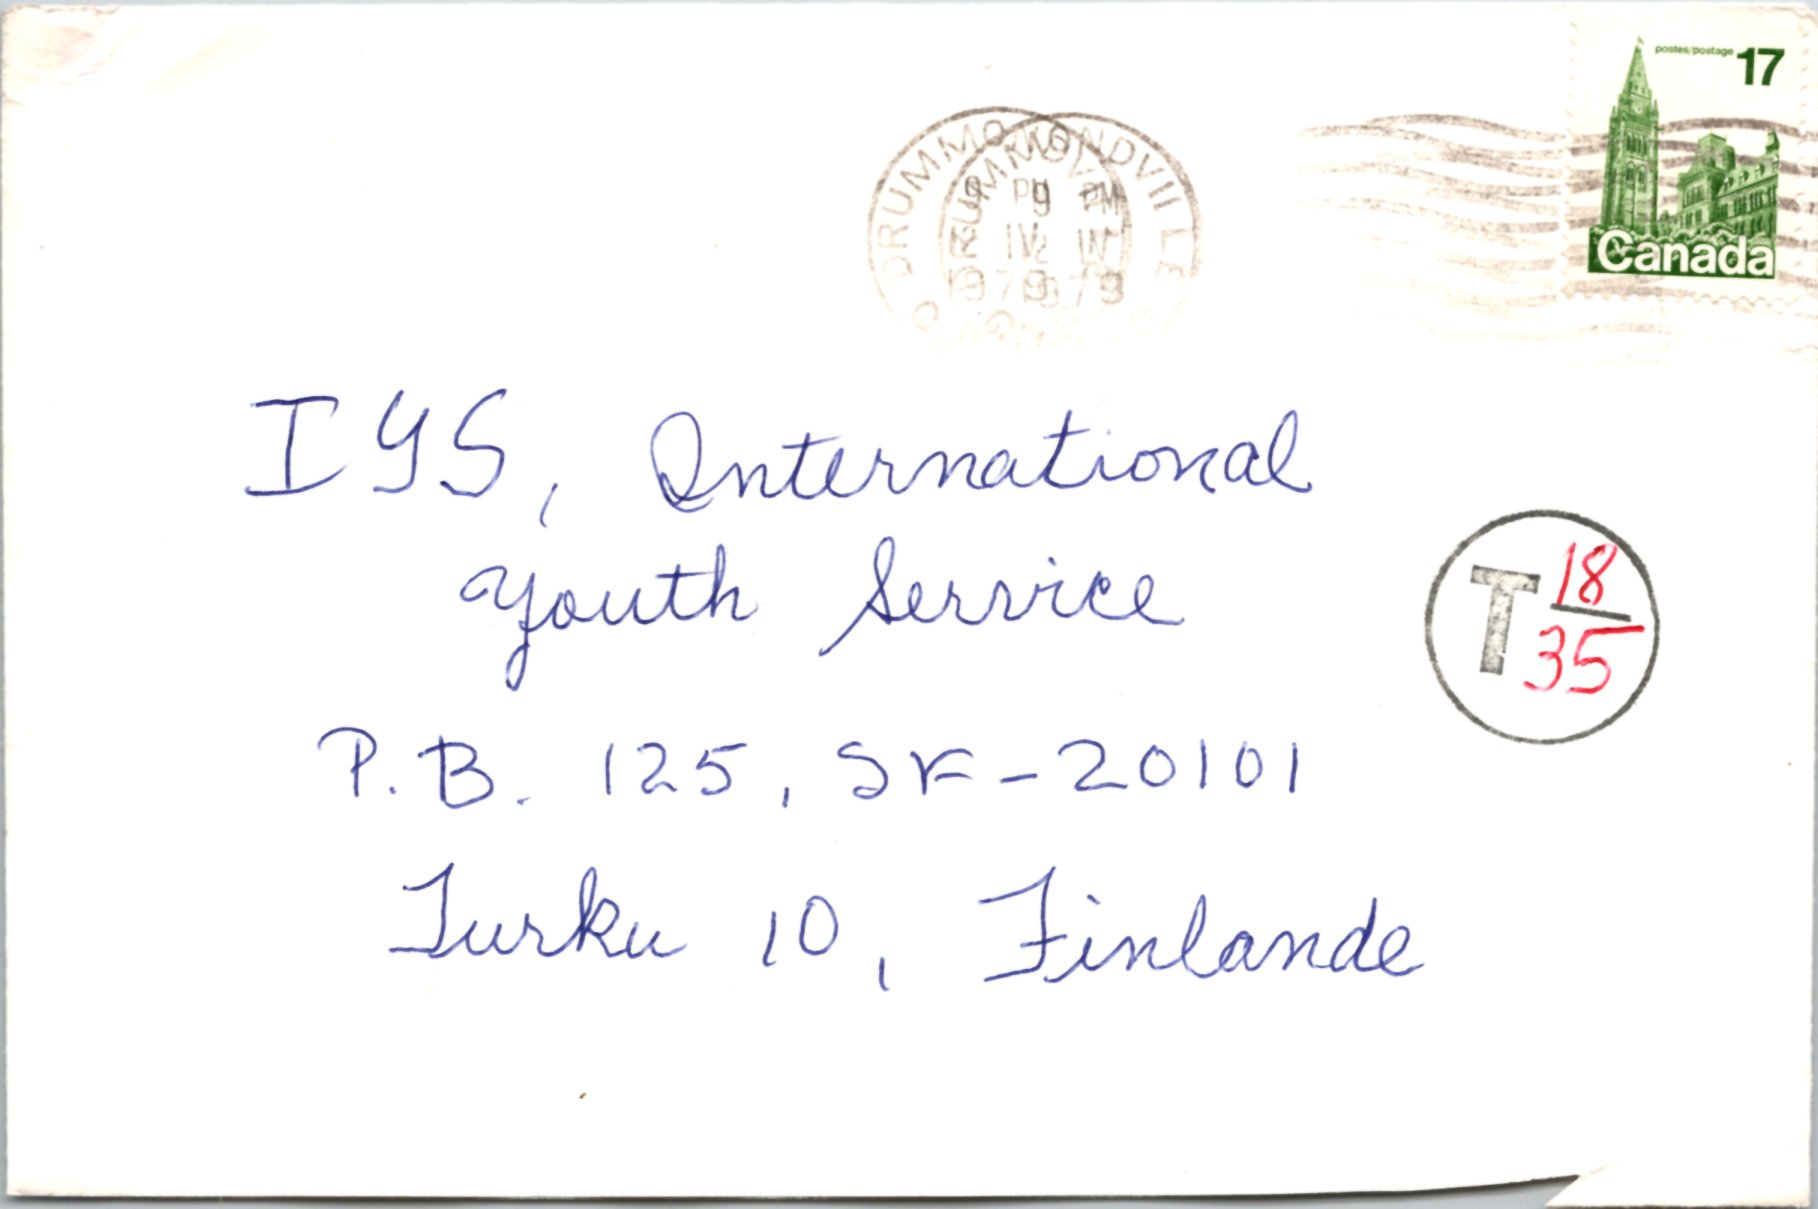 postes/postage 17
Canada
DRUMMONDVILLE
PM
1979
IYS, International
Youth Service
T 18
35
P.B. 125, SF-20101
Turku 10, Finlande